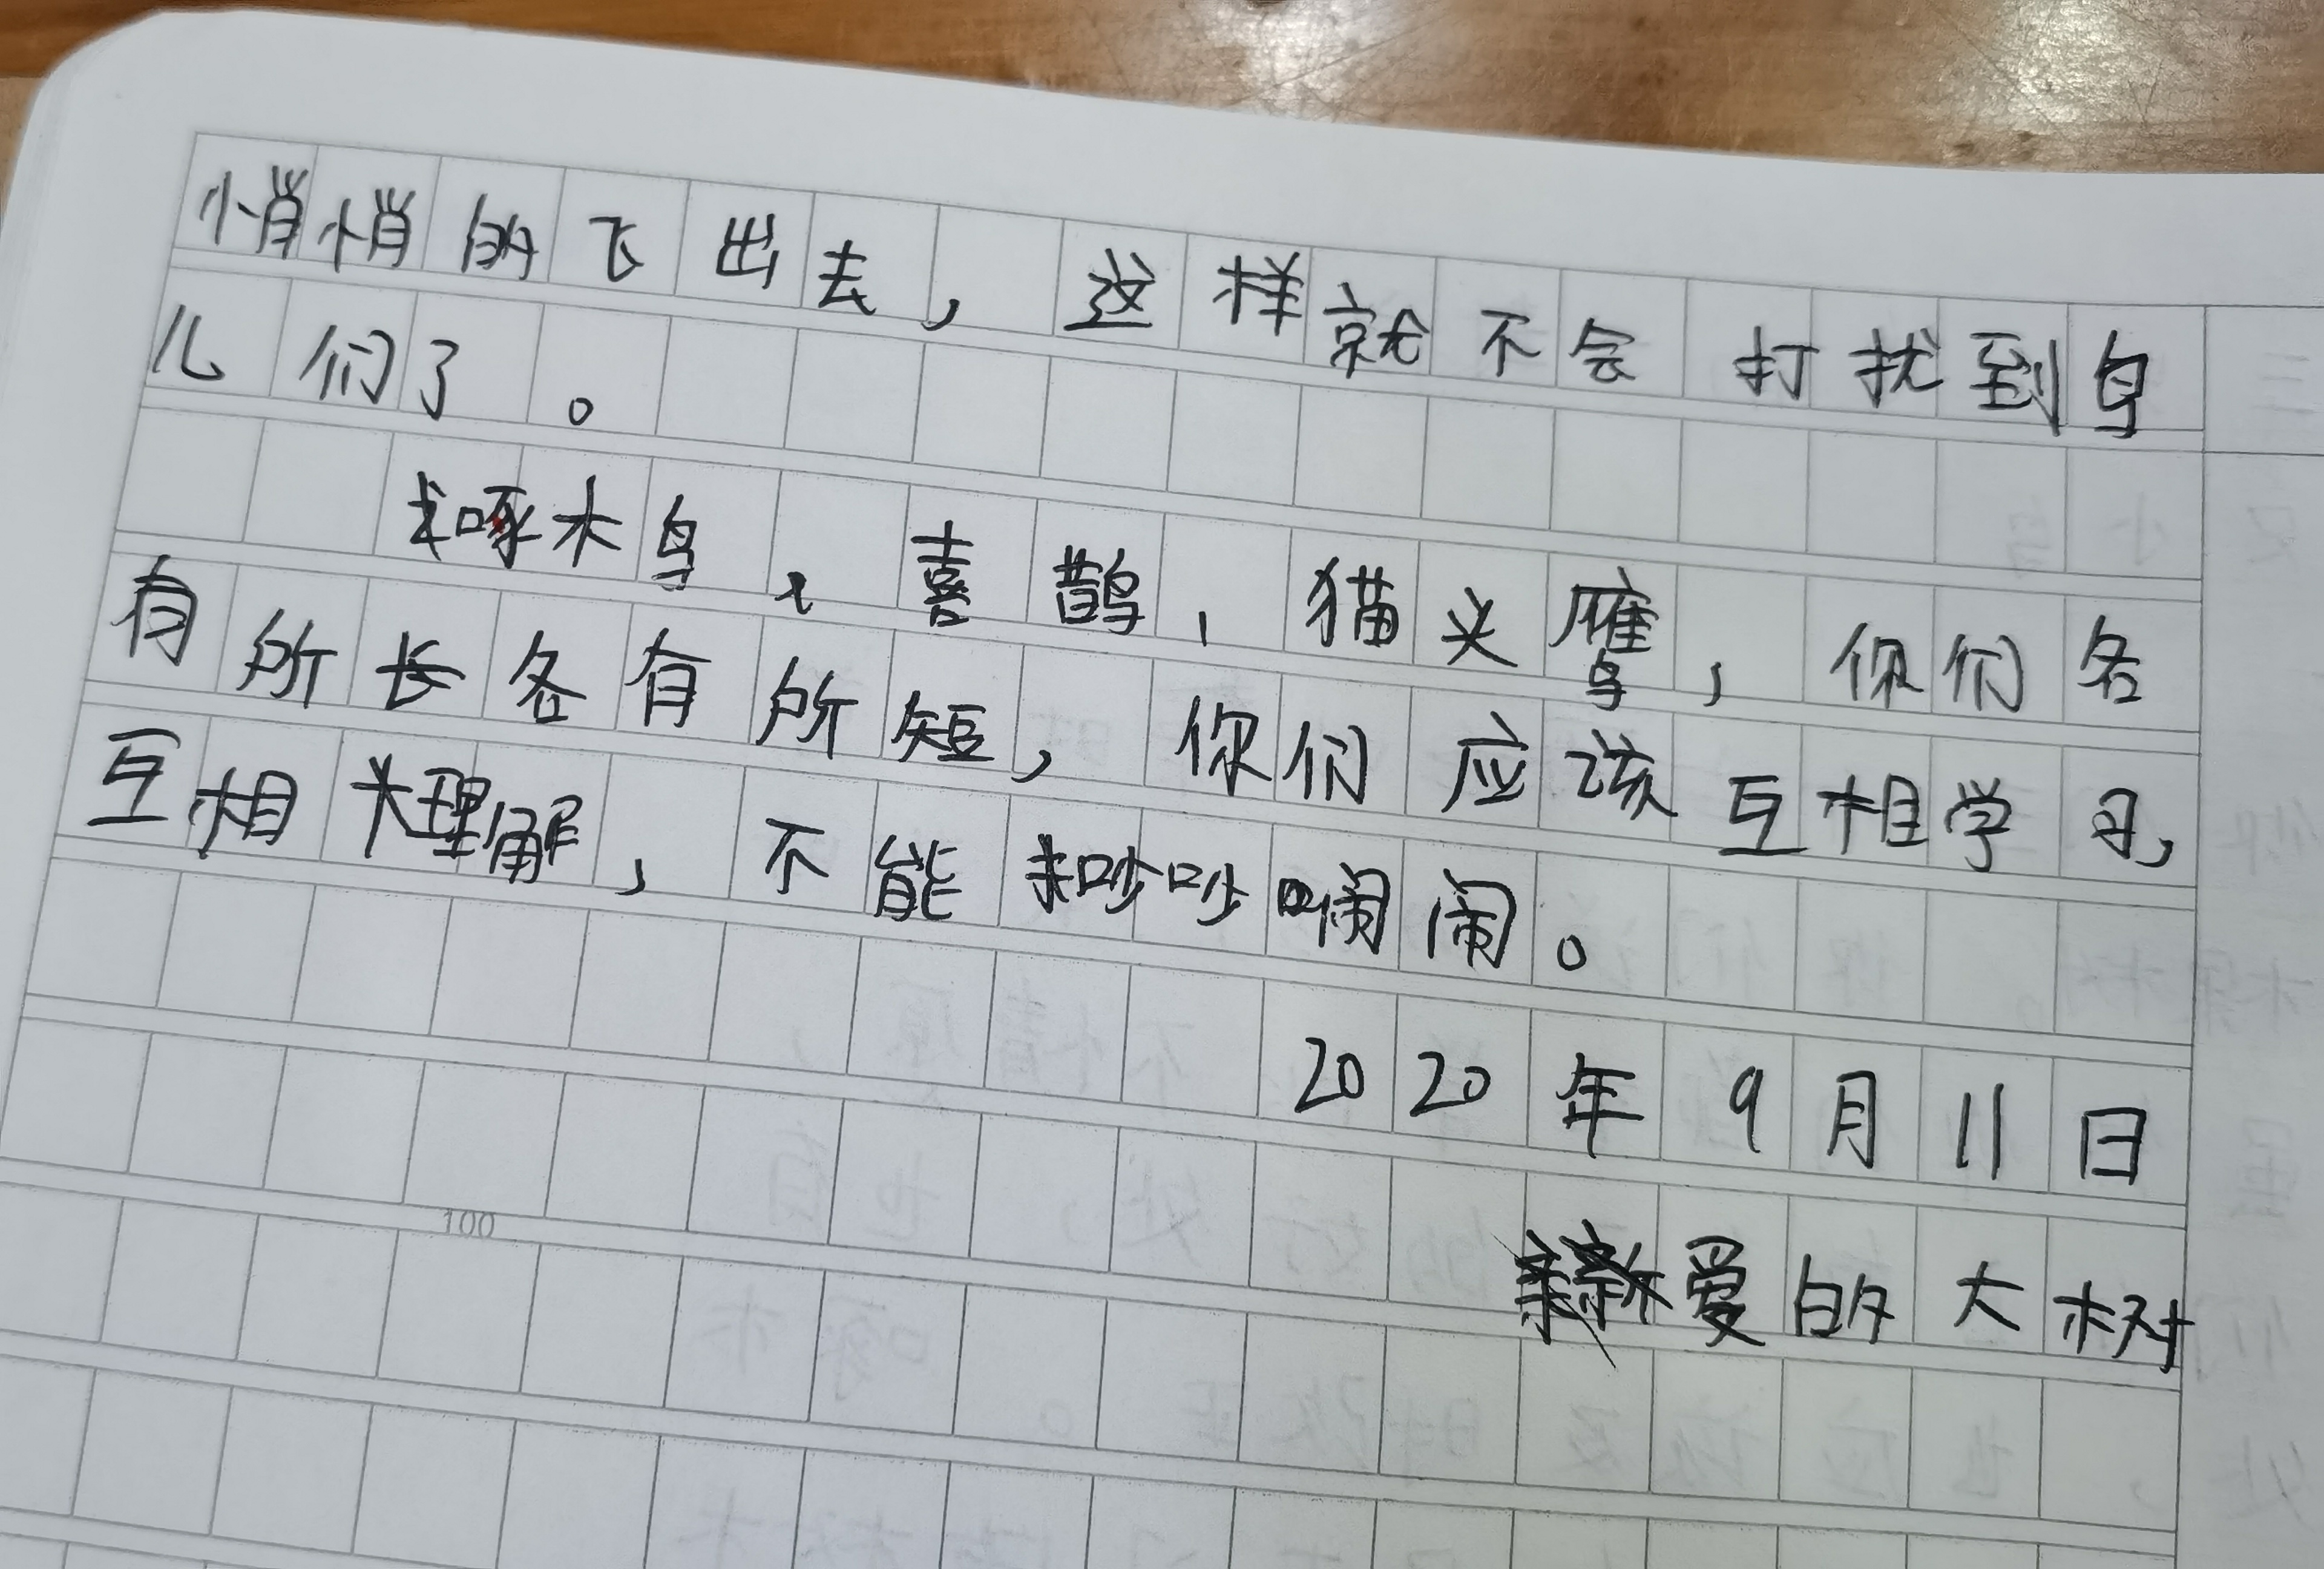 悄悄的飞出去，这样就不会打扰到鸟
儿们了。
啄木鸟、喜鹊，猫头鹰，你们各
有所长各有所短，你们应该互相学习，
互相理解，不能吵吵闹闹。
2020年9月11日
爱的大树
100